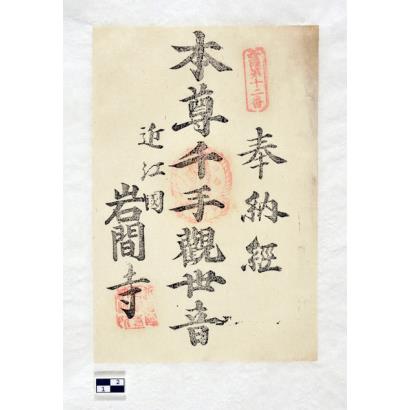 西國第十二番
奉納經
本尊千手觀世音
近江国
岩間寺
1 2